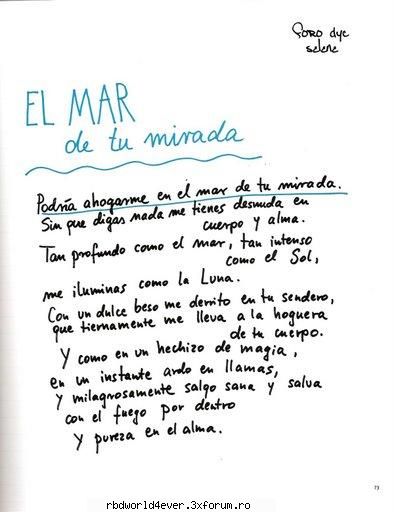 FORO dyc
selene
EL MAR
de tu mirada
Podría ahogarme en el mar de tu mirada.
Sin que digas nada me tienes desnuda en
cuerpo y alma.
Tan profundo como el mar, tan intenso
como el Sol,
me iluminas como la Luna.
Con un dulce beso me derrito en tu sendero,
que tiernamente me lleva a la hoguera
de tu cuerpo.
Y como en un hechizo de magia,
en un instante ardo en llamas,
y milagrosamente salgo sana y salva
con el fuego por dentro
y pureza en el alma.
73
rbdworld4ever.3xforum.ro